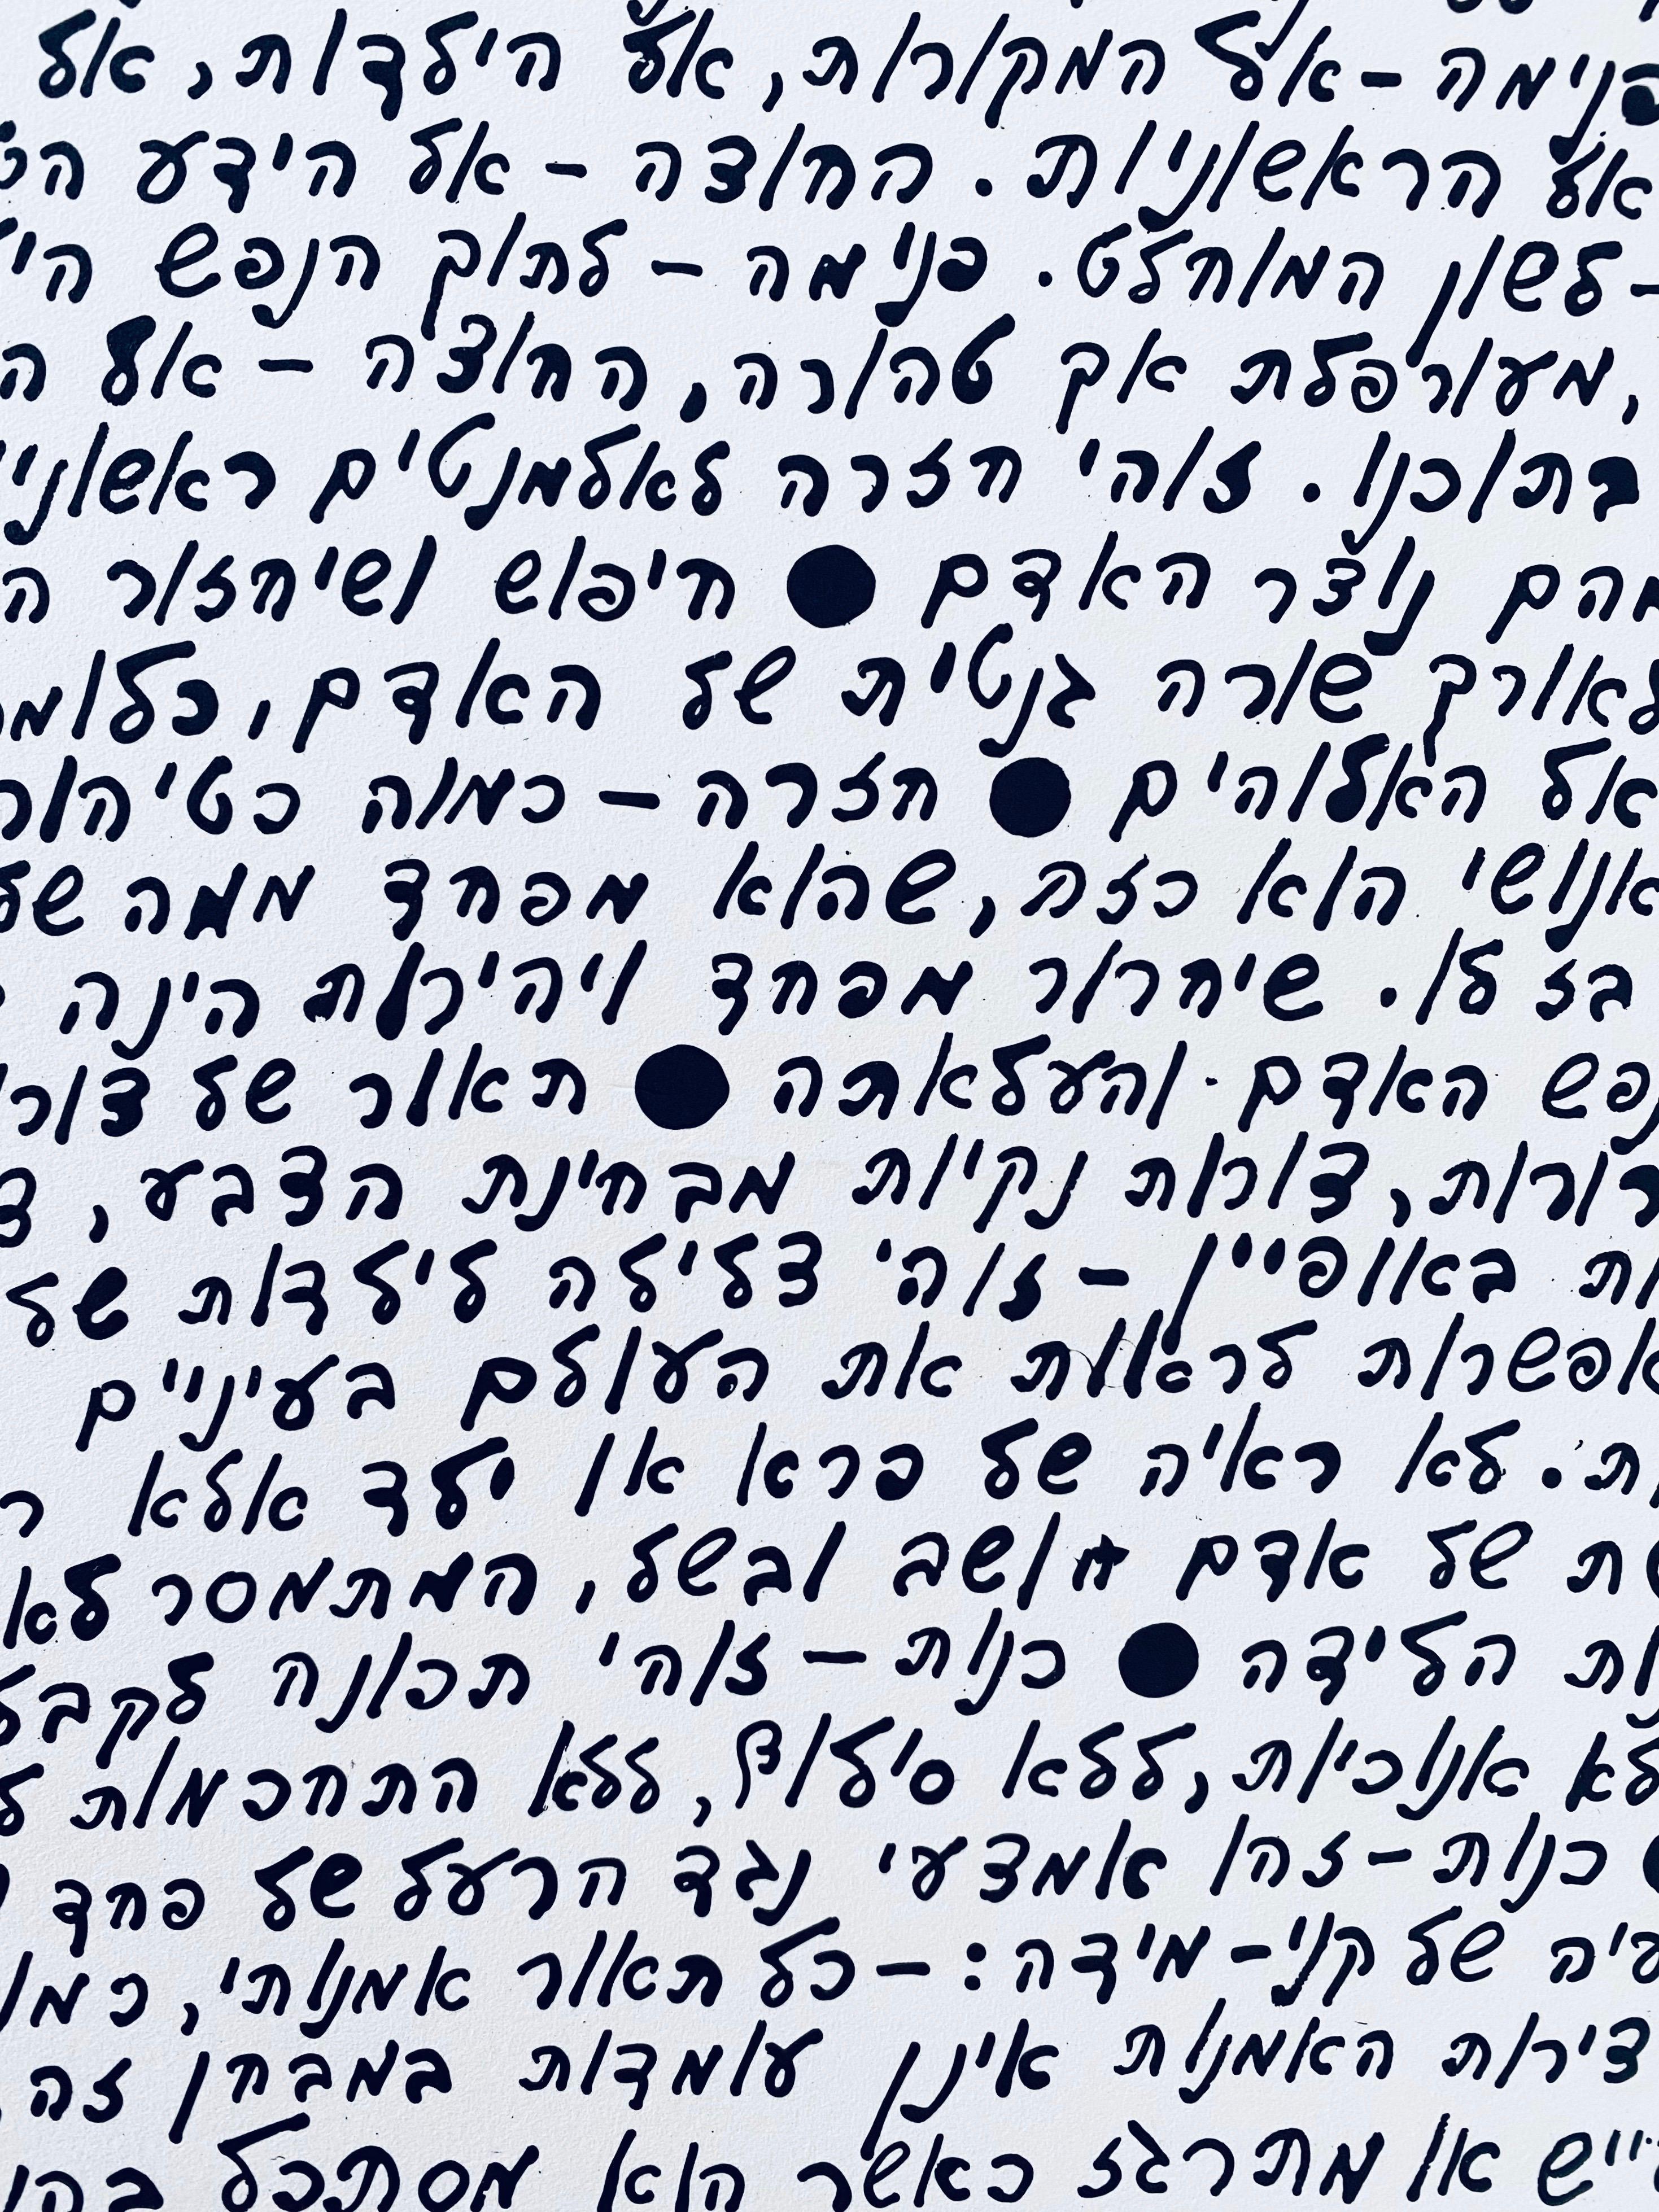 פנימה - אל המקורות, אל הילדות, אל
אל הראשוניות. החוצה - אל הידע
- לשון המוחלט. פנימה - לתוך הנפש
, מעורפלת אך טהורה, החוצה - אל
בתוכנו. זוהי חזרה לאלמנטים
מהם נוצר האדם ● חיפוש ושיחזור
לאורך שורה גנטית של האדם, כלומר
אל האלוהים ● חזרה - כמוה כטיהור
אנושי הוא כזה, שהוא מפחד ממה
בז לו. שיחרור מפחד ויהירות הינה
נפש האדם והעלאתה ● תאור של
צורות נקיות מבחינת הצבע,
באופיין - זוהי צלילה לילדות של
אפשרות לראות את העולם בעיניים
לא ראיה של פרא או ילד אלא
של אדם חושב ובשל, המתמסר
הלידה ● כנות - זוהי תכונה לקבל
לא אנוכיות, ללא סילוף, ללא התחכמות
● כנות - זהו אמצעי נגד הרעל של פחד
של קני - מידה: - כל תאור אמנותי, כמו
האמנות אינן עומדות במבחן זה
או מתרגז כאשר הוא מסתכל